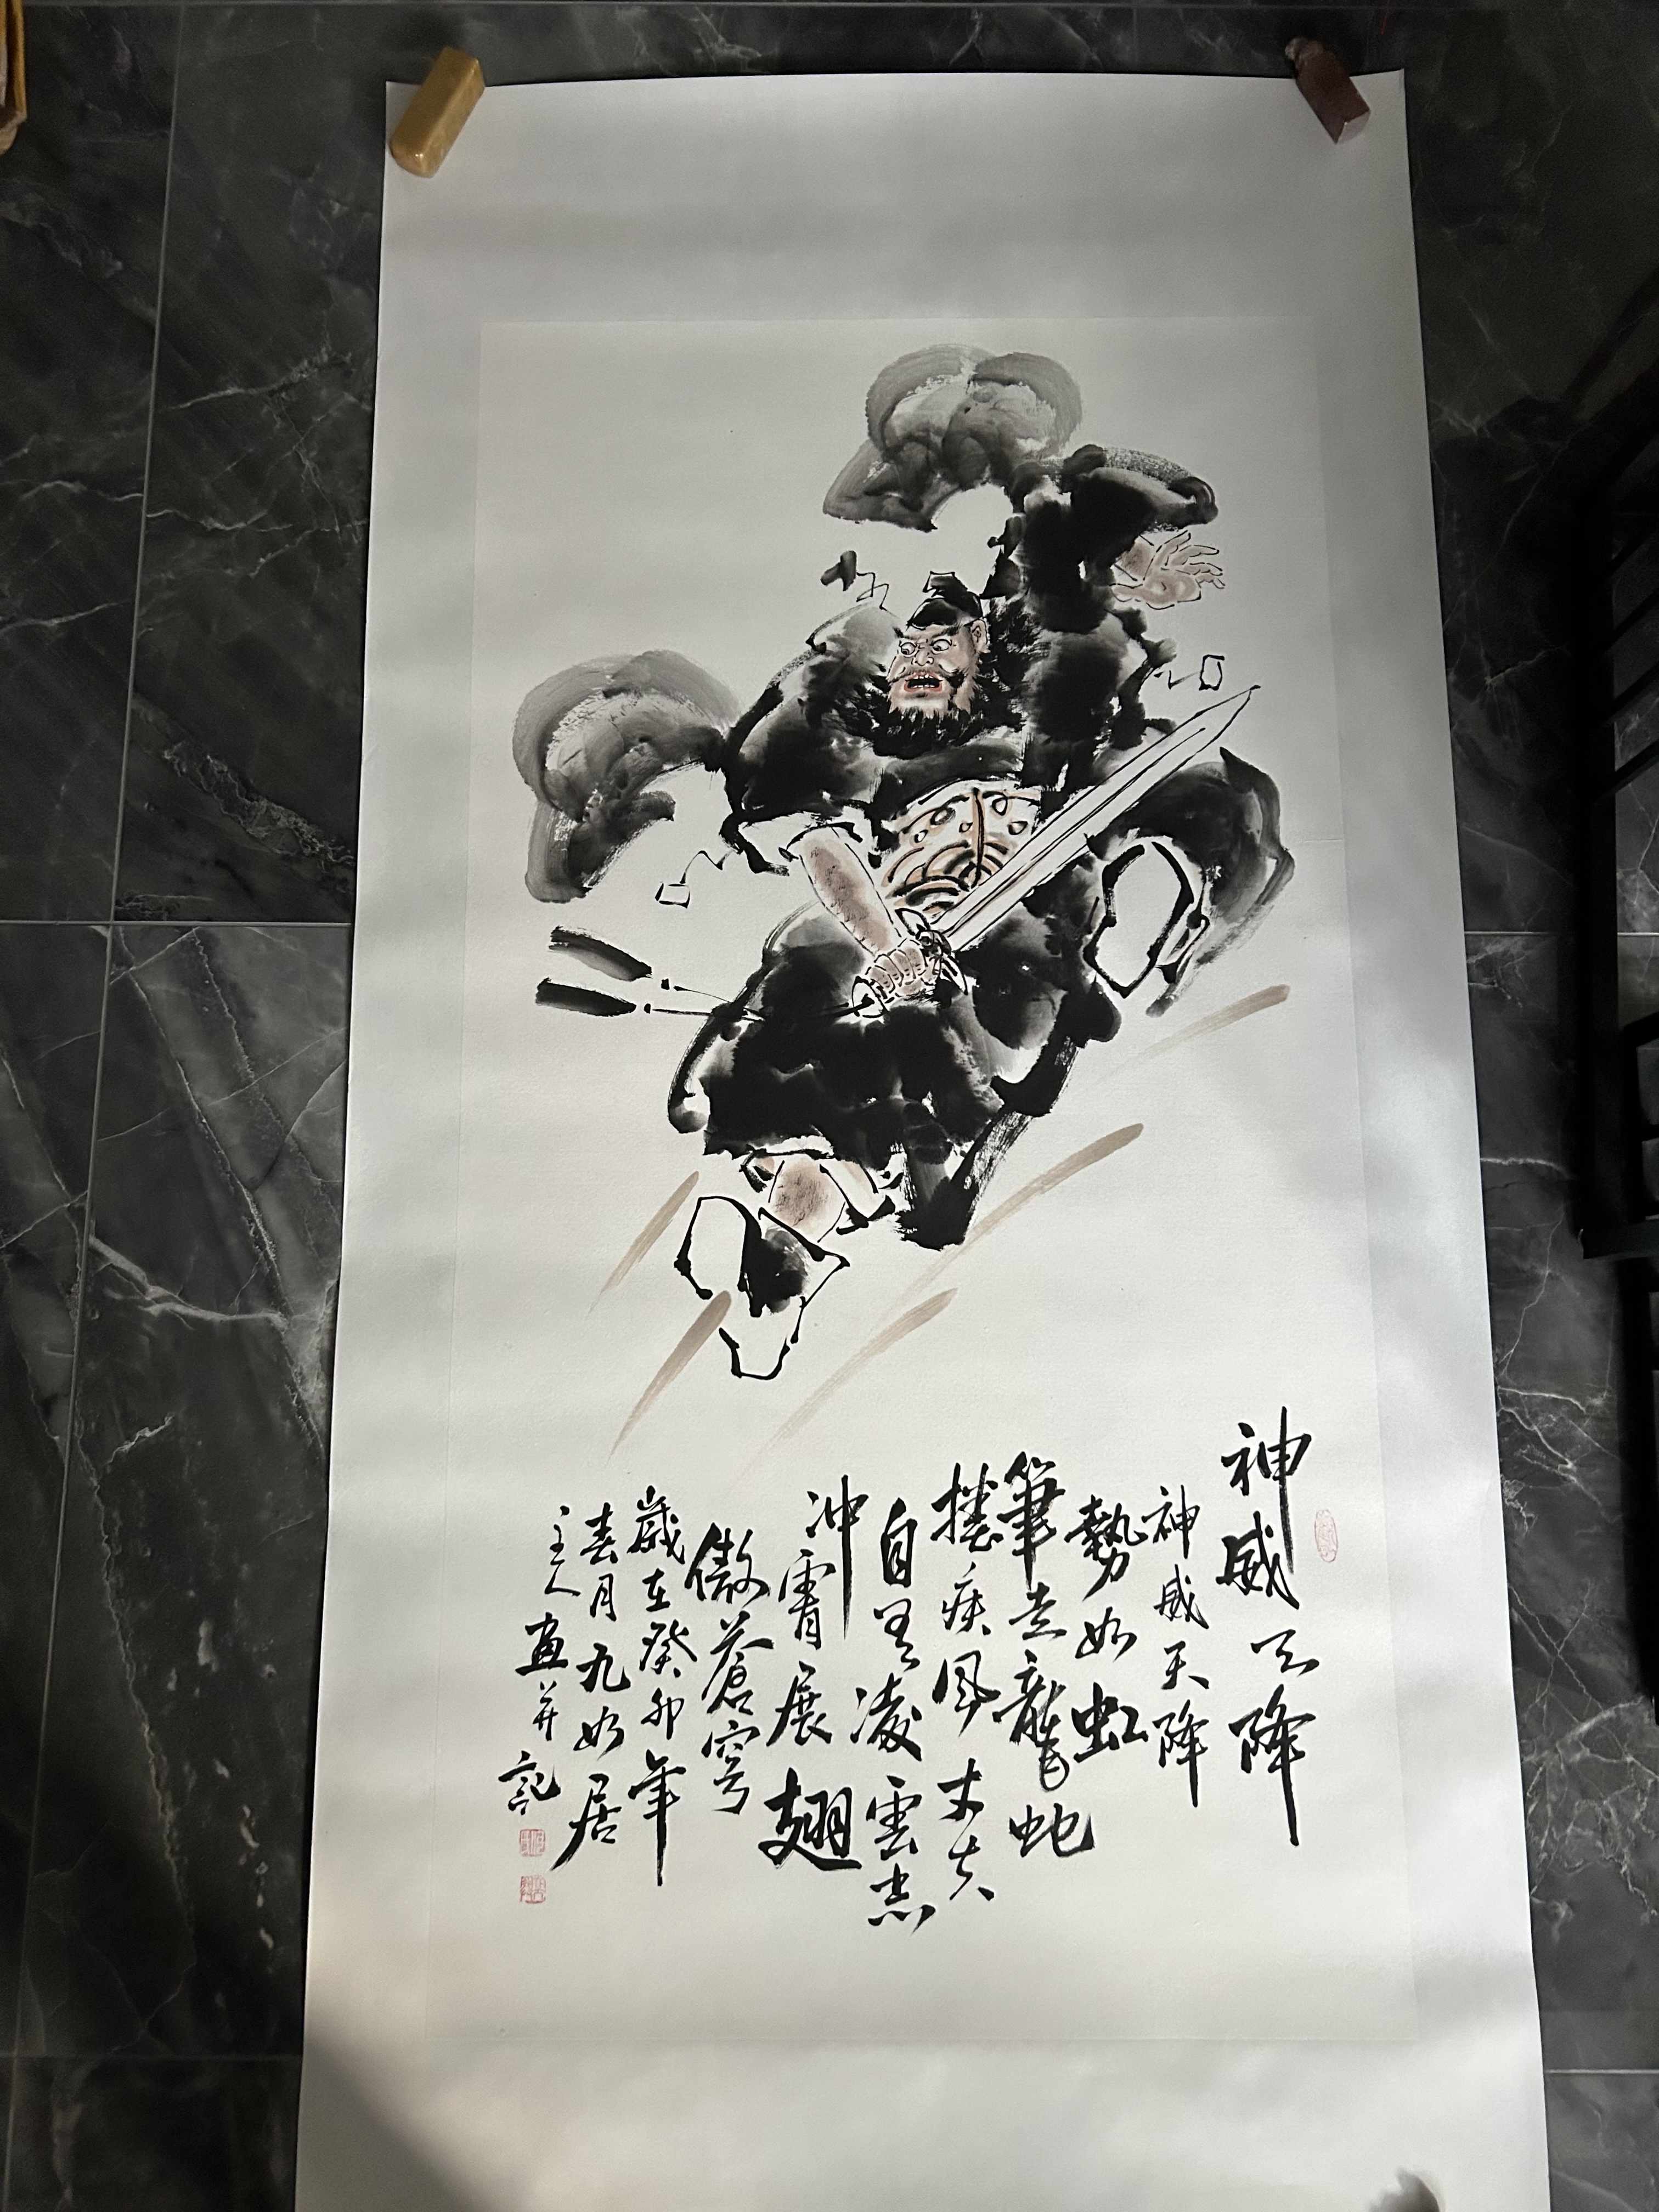 神威天降
神威天降
勢如虹
筆走龍蛇
捲疾風丈夫
自有凌雲志
冲霄展翅
傲蒼穹
歲在癸卯年
春月九如居
主人畫并記